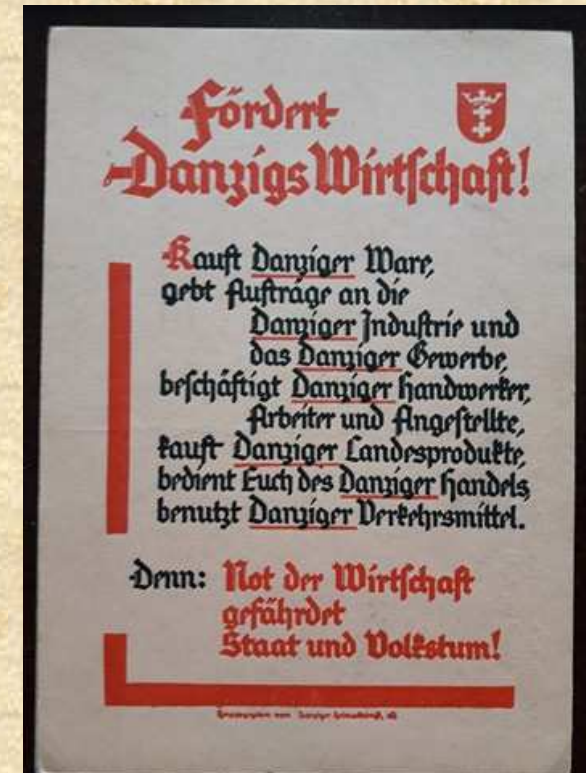 Fördert
Danzigs Wirtschaft!
Kauft Danziger Ware,
gebt Aufträge an die
Danziger Industrie und
das Danziger Gewerbe,
beschäftigt Danziger Handwerker,
Arbeiter und Angestellte,
kauft Danziger Landesprodukte,
bedient Euch des Danziger Handels,
benutzt Danziger Verkehrsmittel.
Denn: Not der Wirtschaft
gefährdet
Staat und Volkstum!
Herausgegeben vom Danziger